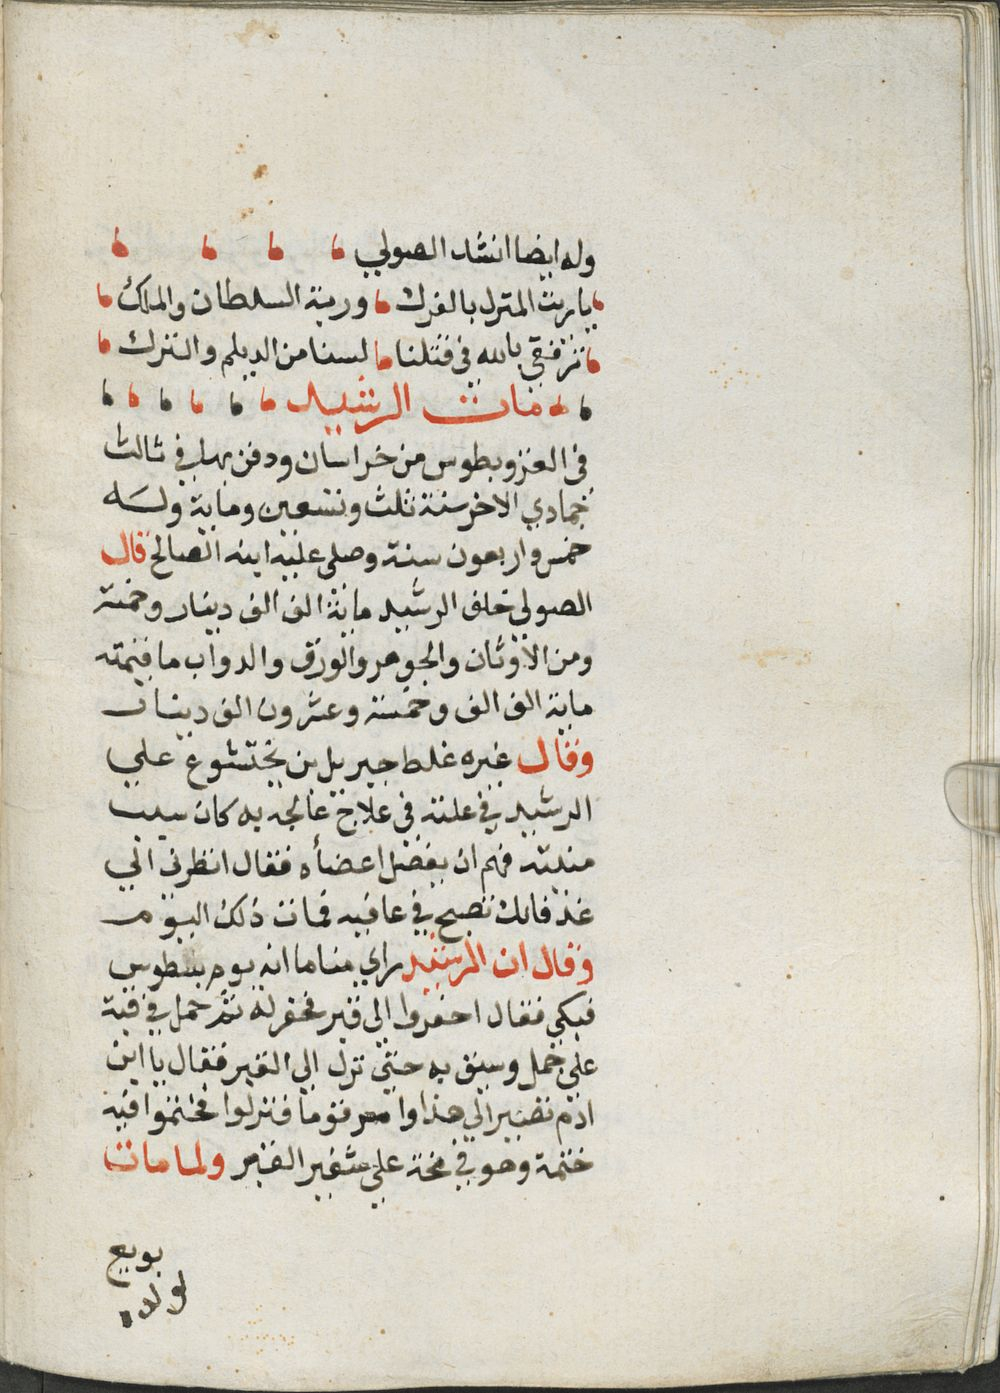 وله ايضا انشد الصولي
يا ربة المنزل بالفرك وربة السلطان والملك
ترفقي بالله في قتلنا لسنا من الديلم والترك
مات الرشيد
في الغزو بطوس من خراسان ودفن بها في ثالث
جمادي الاخر سنة ثلث وتسعين وماية وله
خمس واربعون سنة وصلى عليه ابنه الصالح قال
الصولى خلف الرشيد ماية الف الف دينار وخمسة
ومن الاوثان والجوهر والورق والدواب ما قيمته
ماية الف الف وخمسة وعشرون الف دينار
وقال غيره غلط جبريل بن بختشوع علي
الرشيد في علته في علاج عالجه به كان سبب
منيته فهم ان يفصل اعضأه فقال انظرني الي
غد فانك تصبح في عافيه فمات ذلك اليوم
وقال ان الرشيد راي مناما انه يموت بطوس
فبكي فقال احفروا الى قبر فحفر له ثم حمل في قبة
على جمل وسيق به حتي نزل الي القبر فقال يا ابن
ادم تصير الي هذا وامر قوما فنزلوا فختموا فيه
ختمة وهو في محة علي شفير القبر ولما مات
بويع
لولده